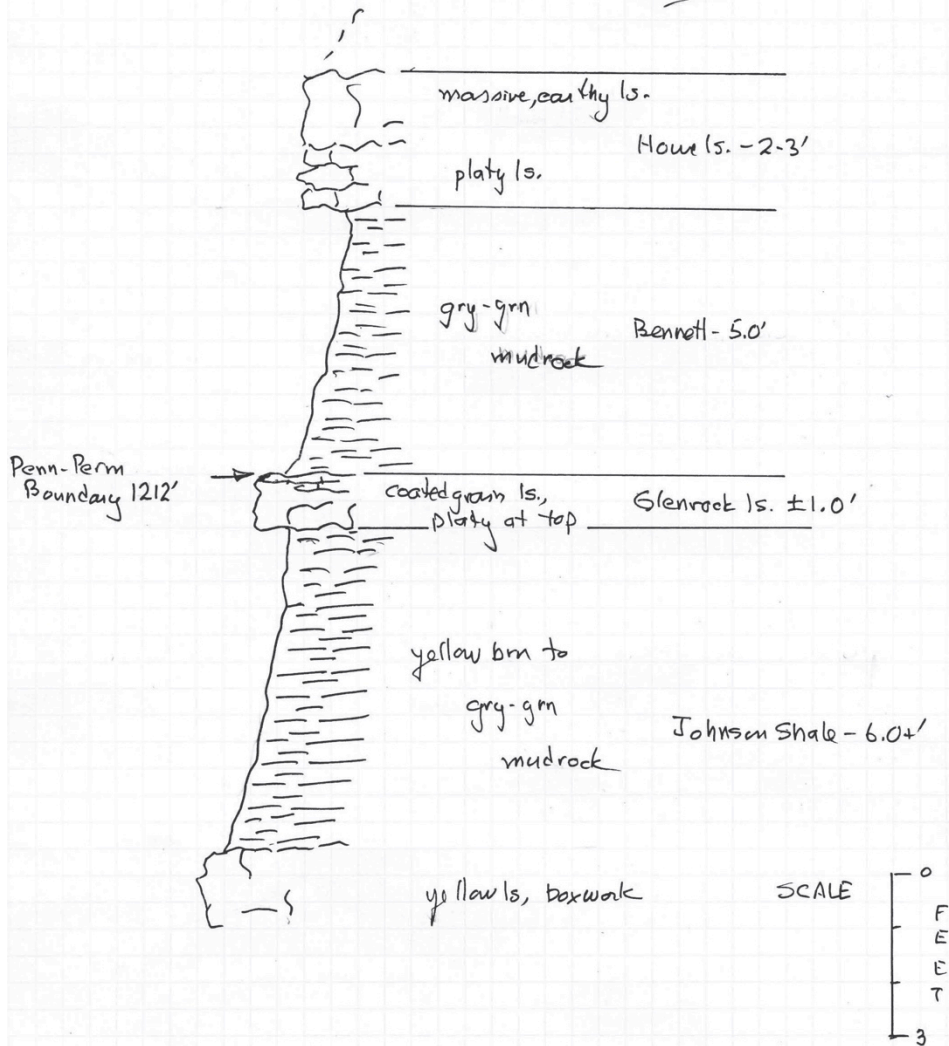 massive, earthy ls.
Howe ls. - 2-3'
platy ls.
gry-grn
mudrock
Bennett - 5.0'
Penn-Perm
Boundary 1212'
coated grain ls.,
platy at top
Glenrock ls. ±1.0'
yellow brn to
gry-grn
mudrock
Johnson Shale - 6.0+'
yellow ls, boxwork
SCALE
0
FEET
3